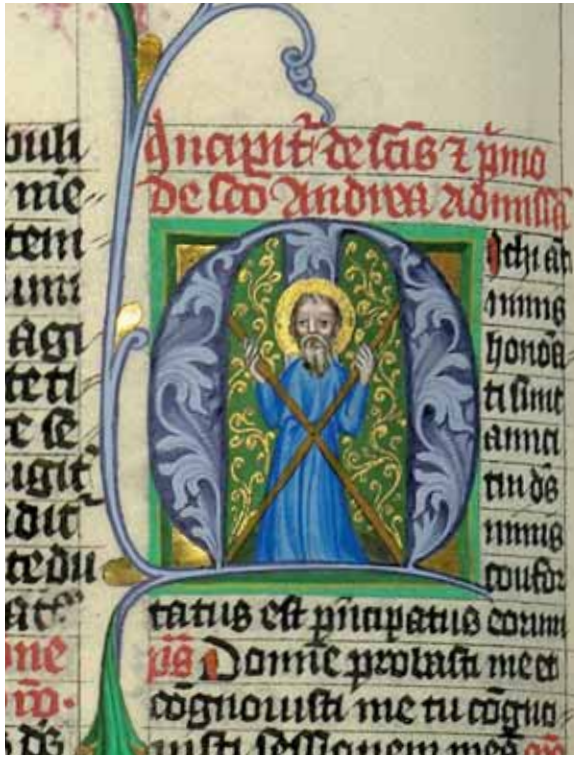 buli
me
tem
agi
teti
e se
igit
dit
tedu
ne
Incipit de scis ⁊ pmo
De sco Andrea Ad missa
Michi at
nimis
honora
ti sunt
amici
tui ds
nimis
confor
tatus est pncipatus eorum
ps Domine probasti me et
cognouisti me tu cogno
uisti sessionem mea